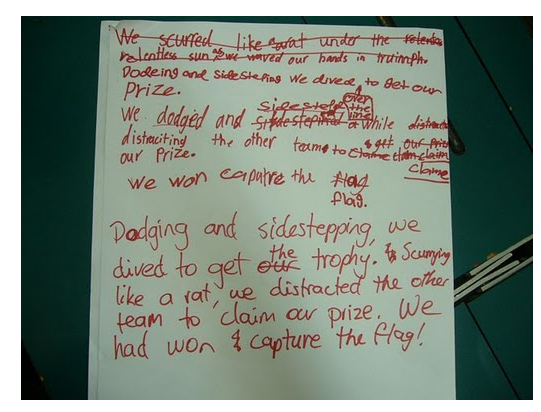 We scurred like a rat under the relentes
relentless sun as we waved our hands in truimph.
Dodging and sidesteping we dived to get our
prize.
We dodged and sidestep over the line while distract
distraciting the other team to get our priz
our prize. claime claim claim
claime
We won caputre the flag
flag.
Dodging and sidestepping, we
dived to get our the trophy. & Scurrying
like a rat, we distracted the other
team to claim our prize. We
had won & capture the flag!